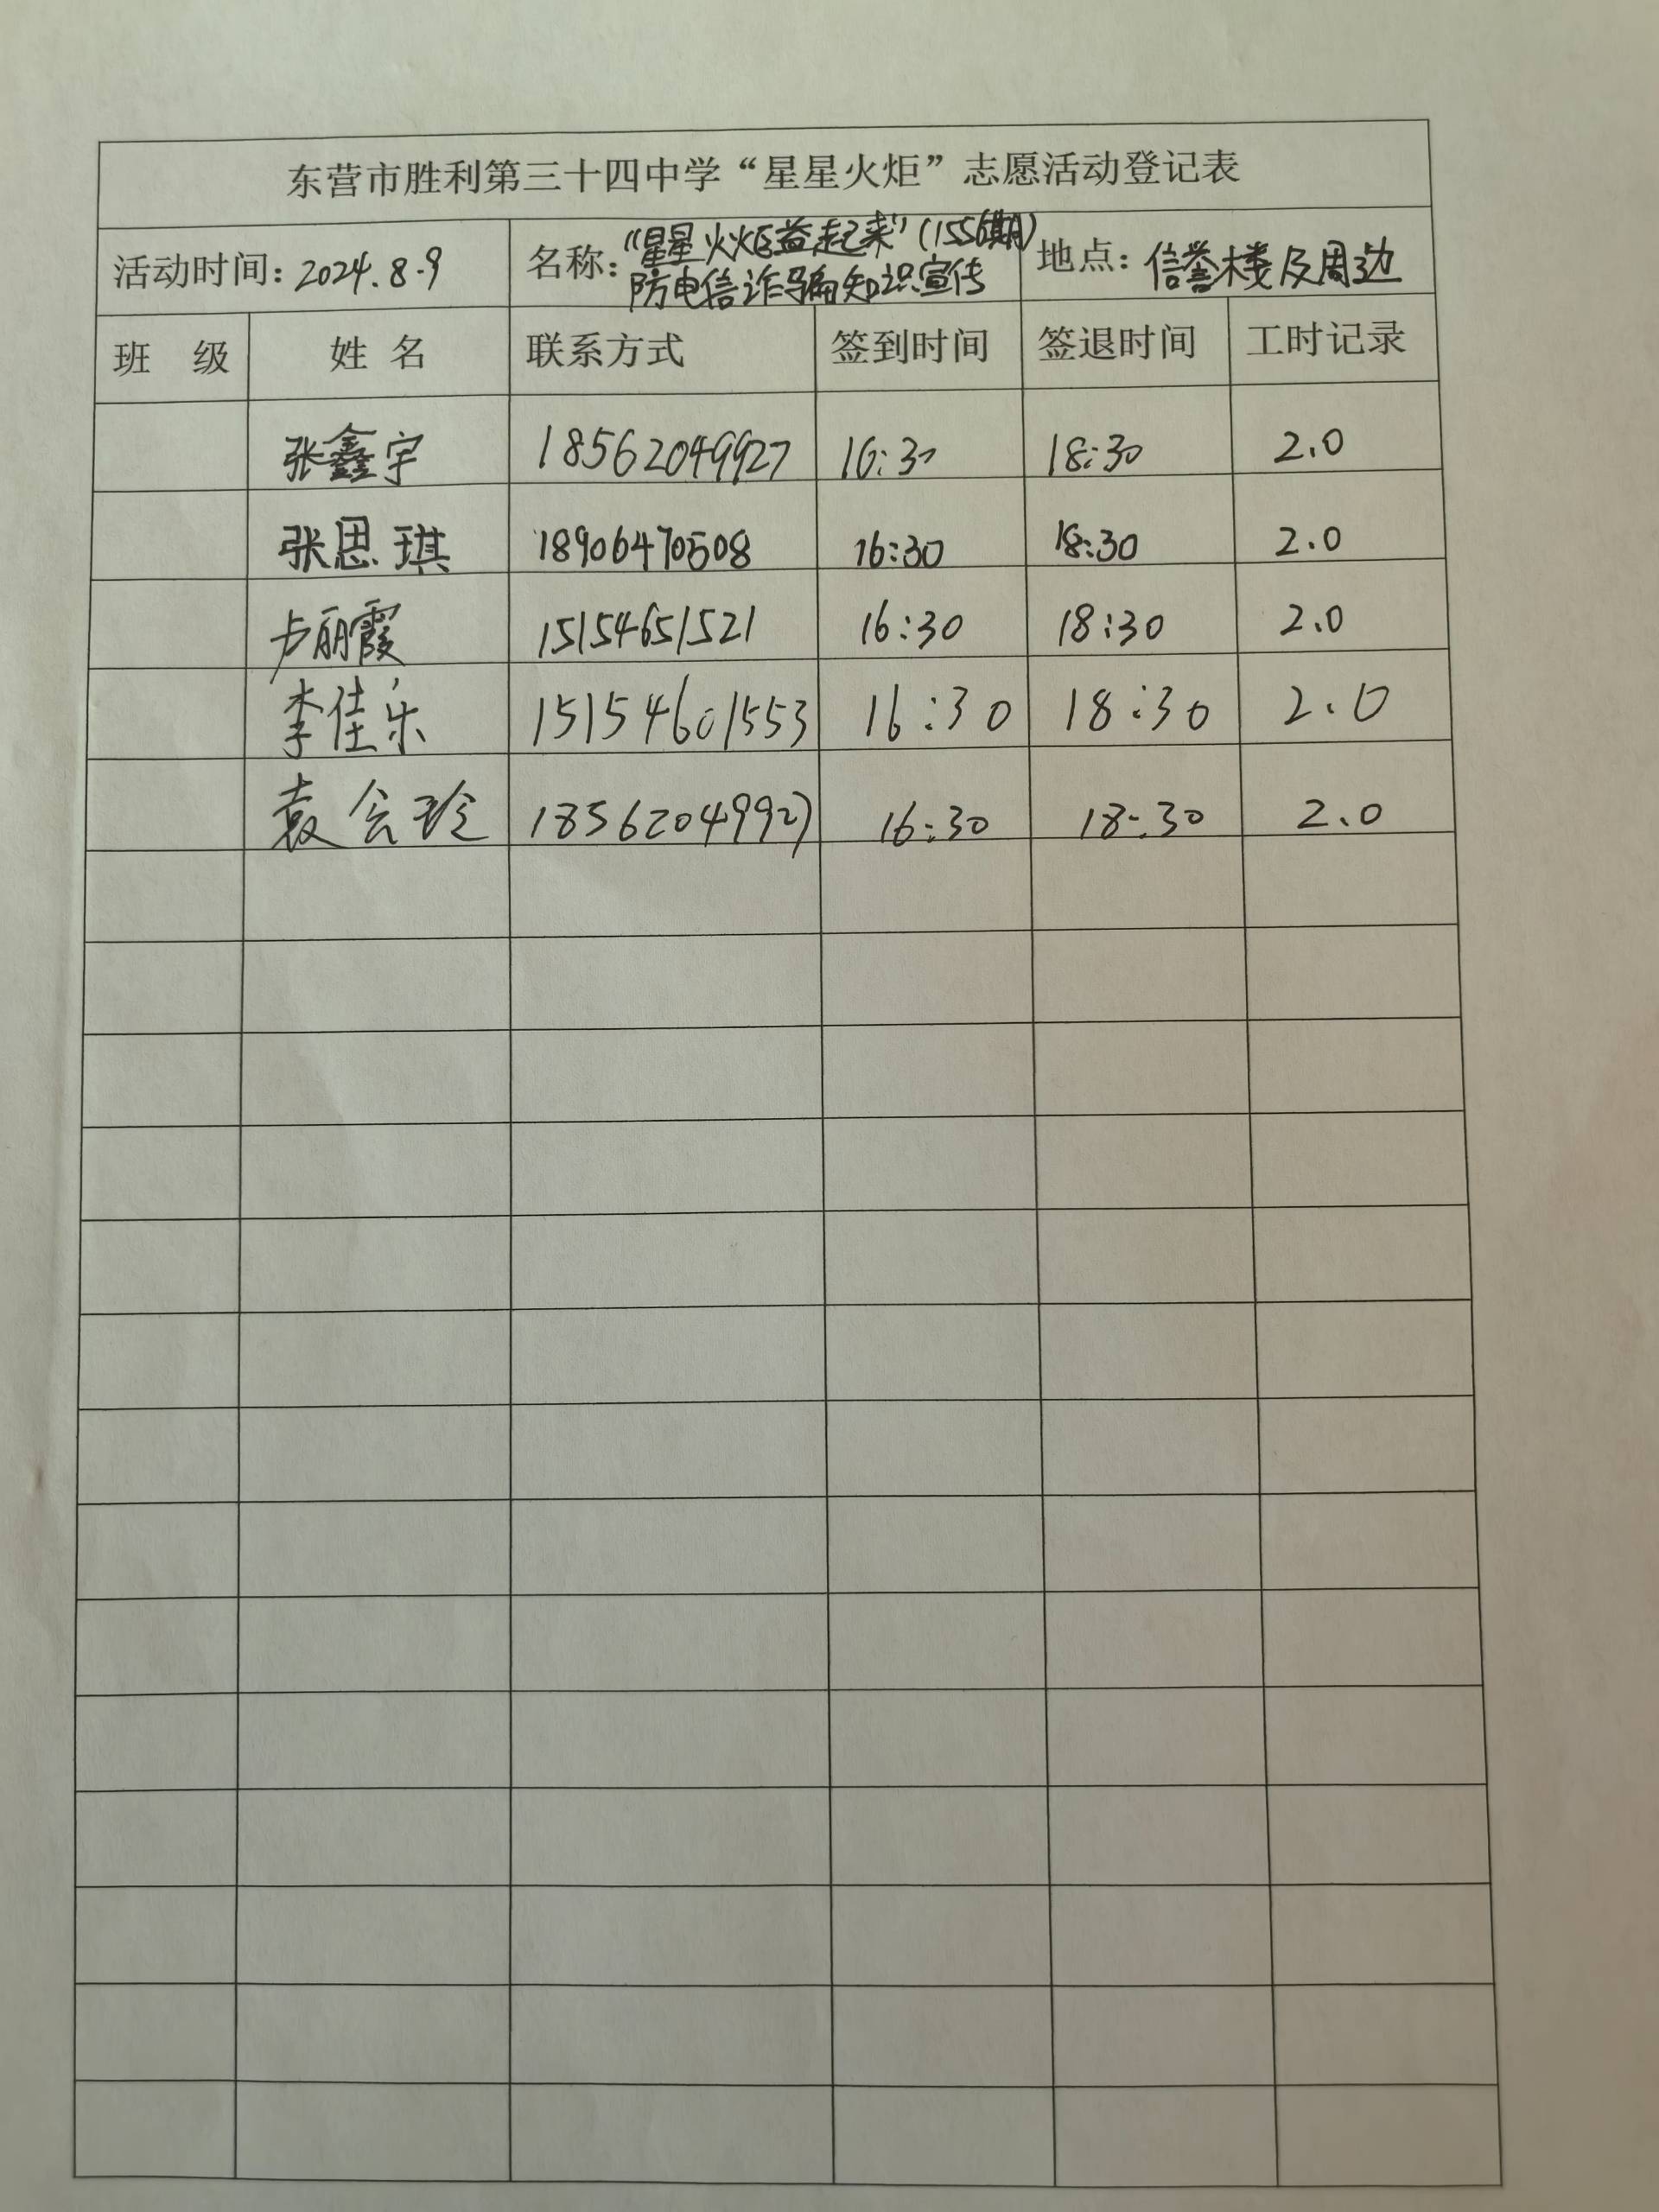 东营市胜利第三十四中学“星星火炬”志愿活动登记表
活动时间：2024.8.9 名称：“星星火炬益起来”（1556期） 地点：信誉楼及周边
防电信诈骗知识宣传
班 级 姓 名 联系方式 签到时间 签退时间 工时记录
张鑫宇 18562049927 16:30 18:30 2.0
张思琪 18906470508 16:30 18:30 2.0
卢丽霞 15154651521 16:30 18:30 2.0
李佳乐 15154601553 16:30 18:30 2.0
袁会玲 18562049927 16:30 18:30 2.0